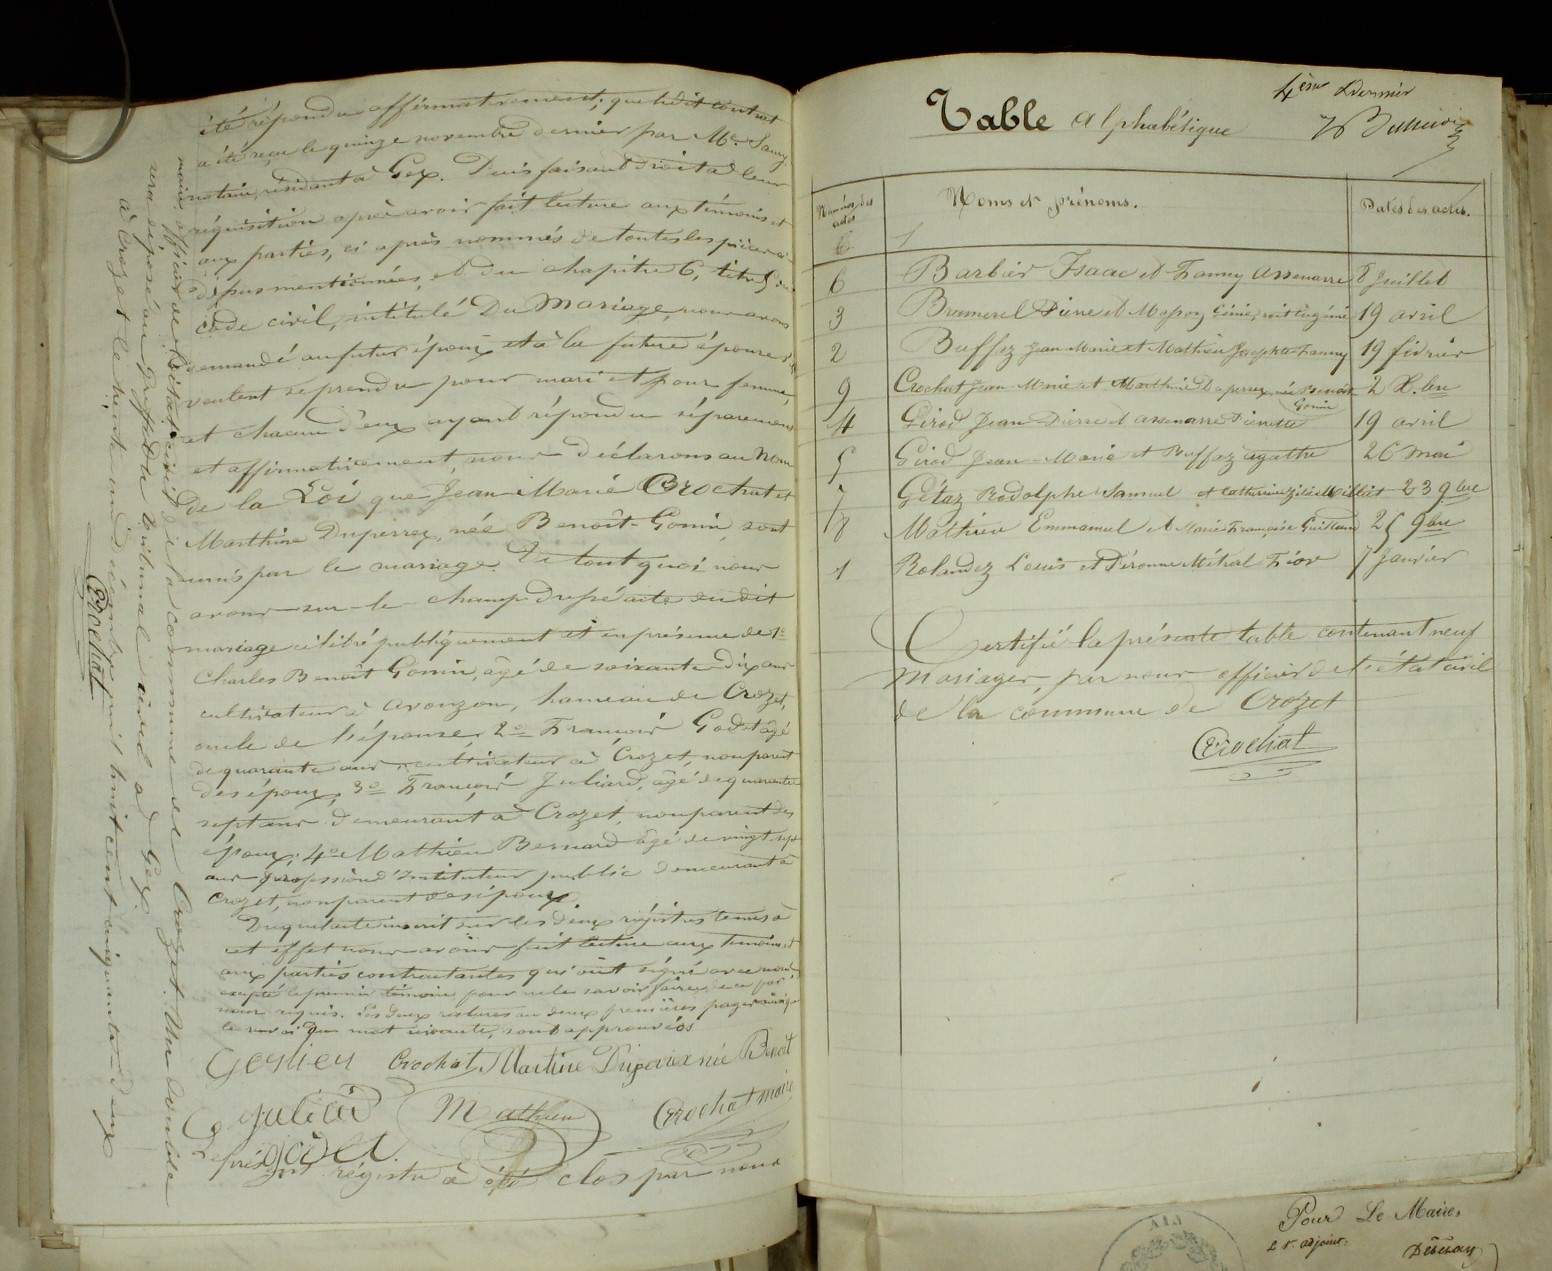 été répondu affirmativement; que ledit contrat
a été reçu le quinze novembre dernier par Me
notaire, résidant à Gex. Puis faisant droit à leur
réquisition après avoir fait lecture aux témoins et
aux parties, ci après nommés de toutes les pièces ci
dessus mentionnées, et du chapitre 6, titre 5 du
code civil, intitulé Du Mariage, nous avons
demandé au futur époux et à la future épouse s'ils
veulent se prendre pour mari et pour femme,
et chacun d'eux ayant répondu séparément
et affirmativement, nous déclarons au Nom
De la Loi que Jean-Marie Crochat et
Marthine Duperrex, née Benoît-Gonin, sont
unis par le mariage. De tout quoi nous
avons sur-le-champ dressé acte du dit
mariage célébré publiquement et en présence de 1°
Charles Benoît Gonin, âgé de soixante dix ans
cultivateur à Avouzon, hameau de Crozet,
oncle de l'épouse, 2° François Godet âgé
de quarante ans cultivateur à Crozet, non parent
des époux, 3° François Juliard, âgé de quarante
sept ans demeurant à Crozet, non parent des
époux; 4° Mathieu Bernard âgé de vingt sept
ans profession d'instituteur public demeurant à
Crozet, non parent des époux.
Duquel acte inscrit sur les deux régistres tenus à
cet effet nous avons fait lecture aux témoins et
aux parties contractantes qui ont signé avec nous
excepté le premier témoin pour ne le savoir faire de ce par
nous requis. Les deux ratures au deux premières pages
le renvoi d'un mot suivante, sont approuvées
Crochat Martine Duperrex née Benoît
Juliard Mathieu Crochat maire
Godet
Le présent régistre à été clos par nous
maire, officier de l'état civil de la commune de Crozet. Un double
sera déposé au greffe du tribunal civil à Gex
à Crozet le trente un décembre mil huit cent cinquante-deux
Crochat
4ème Dernier
Table Alphabétique
Numéros des actes
Noms et prénoms.
Dates des actes.
6 Barbier Isaac et Fanny Assenarre 8 Juillet
3 Pierre et 19 avril
2 Buffaz Jean Marie et Mathieu Josephte-Fanny 19 février
9 Crochat Jean-Marie et Marthine Duperrex née Benoit Gonin 2 X.bre
4 Girod Jean-Pierre et Assenarre Pierrette 19 avril
5 Girod Jean-Marie et Buffaz agathe 26 mai
7 Gétaz Rodolphe Samuel et Catherine 23 9bre
8 Mathieu Emmanuel et Marie Françoise 25 9bre
1 Rolandez Louis et Péronne Métral 7 Janvier
Certifié la présente table contenant neuf
Mariages, par nous officier de l'état civil
de la commune de Crozet
Crochat
AIN
Pour Le Maire,
L'adjoint.